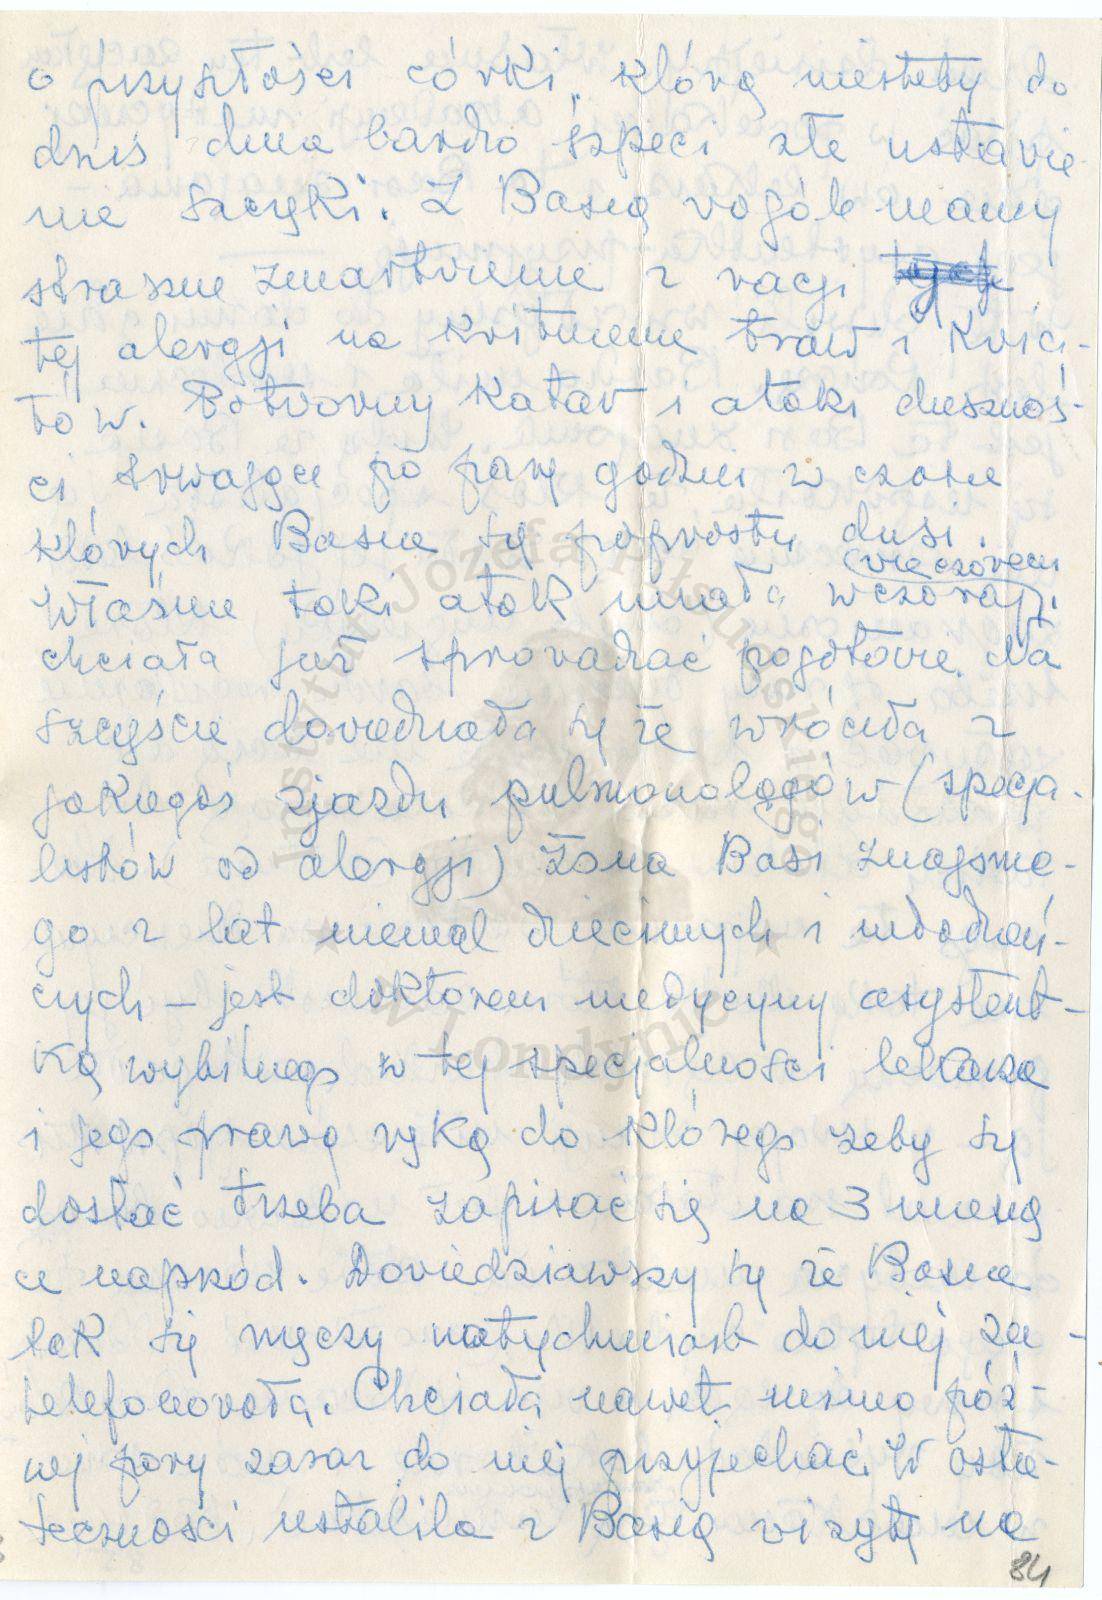 o przyszłości córki, którą niestety do
dziś dnia bardzo szpeci złe ustawie-
nie szczęki. Z Basią wogóle mamy
straszne zmartwienie z racji
tej alergji na kwitnienie traw i kwia-
tów. Potworny katar i ataki dusznoś-
ci trwające po parę godzin w czasie
których Basia się poprostu dusi.
(wieczorem
Właśnie taki atak miała wczoraj).
chciała już sprowadzać pogotowie. Na
szczęście dowiedziała się że wróciła z
jakiegoś zjazdu pulmonologów (specja-
listów od alergji) żona Basi znajome-
go z lat niemal dziecinnych i młodzień-
czych – jest doktorem medycyny asystent-
ką wybitnego w tej specjalności lekarza
i jego prawą ręką do którego żeby się
dostać trzeba zapisać się na 3 miesią
ce naprzód. Dowiedziawszy się że Basia
tak się męczy natychmiast do niej za-
telefonowała. Chciała nawet mimo póź-
nej pory zaraz do niej przyjechać. W osta-
teczności ustaliła z Basią wizytę na
84
Instytut Józefa Piłsudskiego
w Londynie